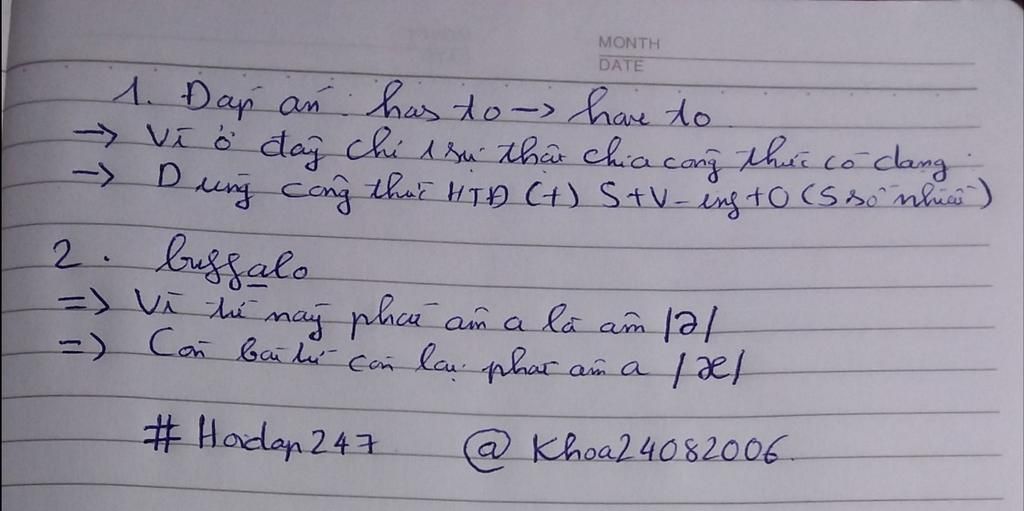 MONTH
DATE
1. Đáp án: has to → have to
→ Vì ở đây chỉ 1 sự thật chia công thức có dạng
→ Dùng công thức HTĐ (+) S+V-ing+O (S số nhiều)
2. buffalo
=> Vì từ này phát âm a là âm /ə/
=> Còn ba từ còn lại phát âm a /æ/
# Hoidap247 @ Khoa24082006.